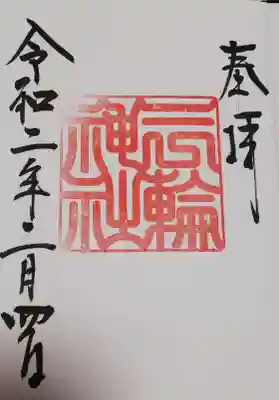 奉拝
三輪
神社
令和二年二月四日